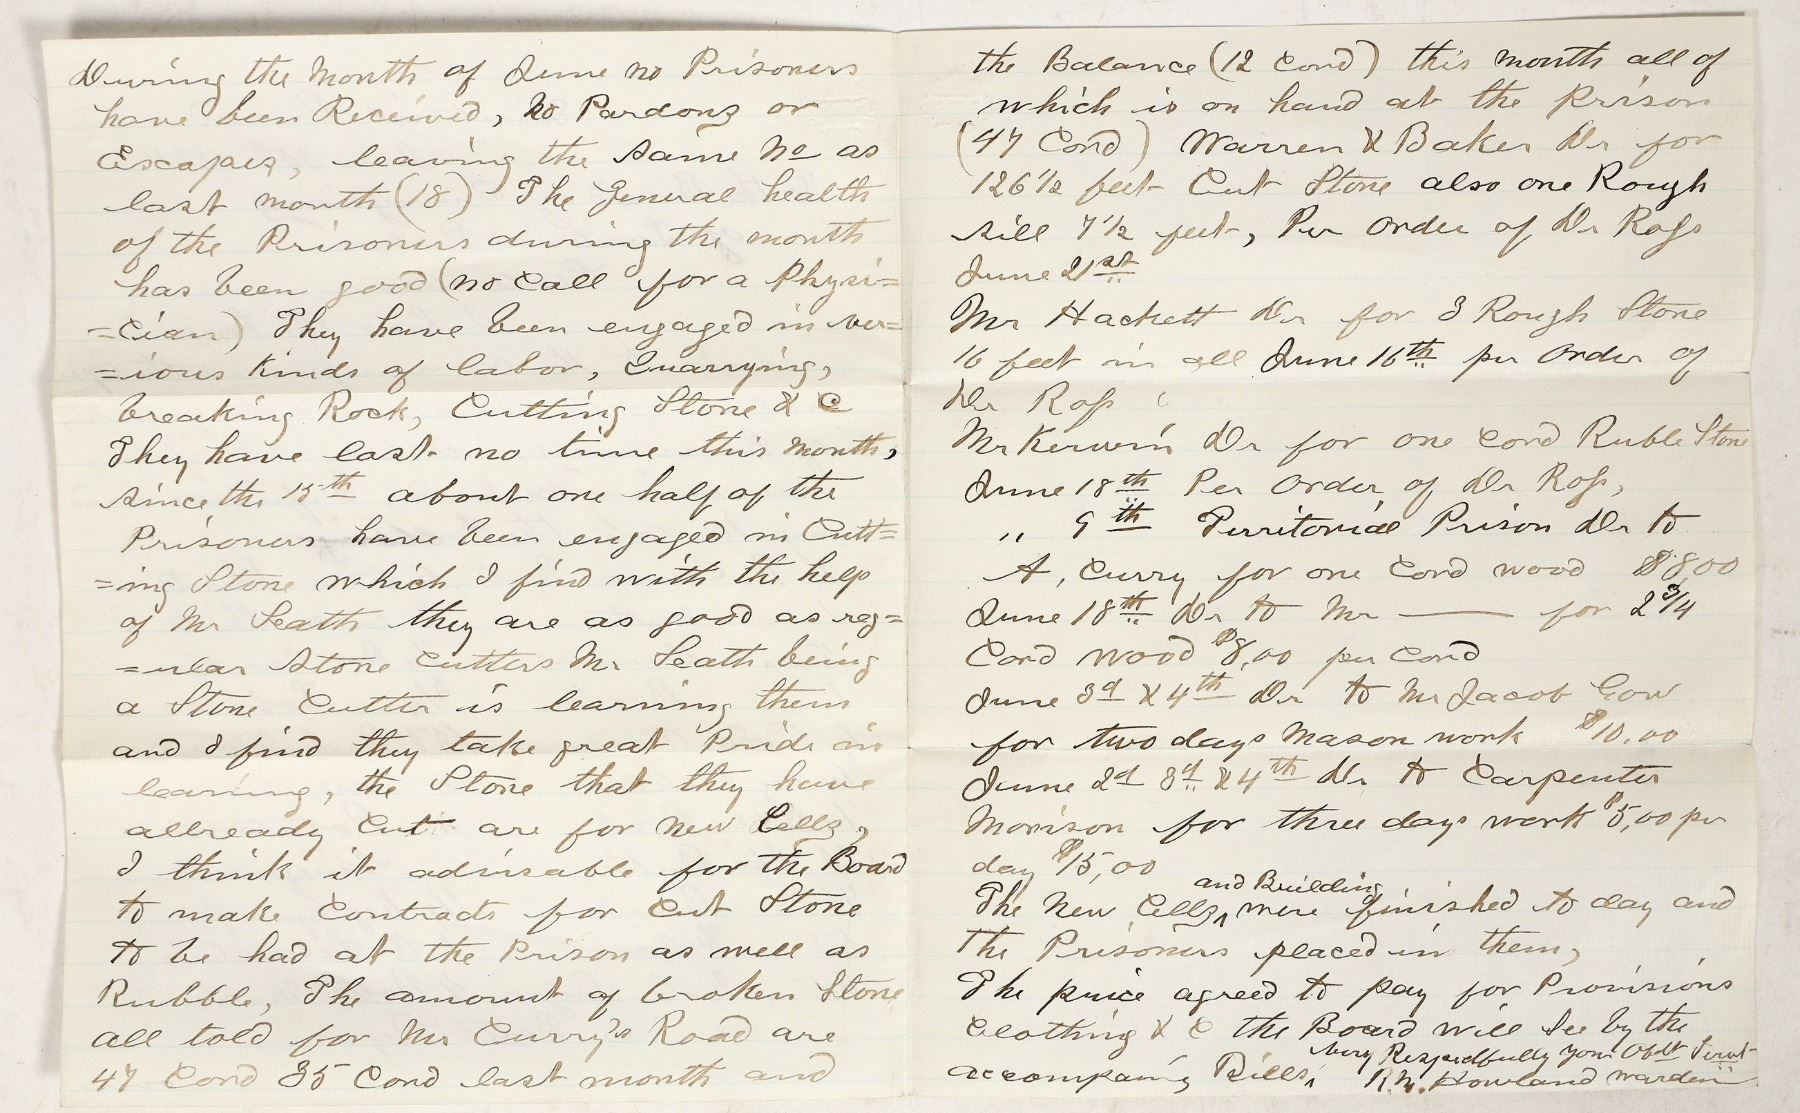 During the Month of June no Prisoners
have been Received, No Pardons or
Escapes, leaving the same No as
last month (18) The General health
of the Prisoners during the month
has been good (no Call for a Physi=
=cian) They have been engaged in ver=
=ious Kinds of labor, Quarrying,
breaking Rock, Cutting Stone & C
They have lost no time this Month,
since the 15th about one half of the
Prisoners have been engaged in Cutt=
=ing Stone which I find with the help
of Mr Seath they are as good as reg=
=ular Stone Cutters Mr Seath being
a Stone Cutter is learning them
and I find they take great Pride in
learning, the Stone that they have
allready Cut are for New Cells,
I think it advisable for the Board
to make Contracts for Cut Stone
to be had at the Prison as well as
Rubble, The amount of broken Stone
all told for Mr Curry's Road are
47 Cord 35 Cord last month and
the Balance (12 Cord) this month all of
which is on hand at the Prison
(47 Cord) Warren & Baker Dr for
126 1/2 feet Cut Stone also one Rough
sill 7 1/2 feet, Per Order of Dr Ross
June 21st
Mr Hackett Dr for 3 Rough Stone
16 feet in all June 16th per Order of
Dr Ross
Mr Kerwin Dr for one Cord Ruble Stone
June 18th Per Order of Dr Ross,
" 9th Territorial Prison Dr to
A, Curry for one Cord wood $8,00
June 18th Dr to Mr —— for 2 3/4
Cord wood $8,00 per Cord
June 3d & 4th Dr to Mr Jacob Gow
for two days Mason work $10.00
June 2d 3d & 4th Dr to Carpenter
Morison for three days work $5,00 per
day $15,00
The New Cells ^ and Building were finished to day and
the Prisoners placed in them,
The price agreed to pay for Provisions
Clothing & C the Board will See by the
accompaing Bills, Very Respectfully your Obdt Servt
R.M. Howland Warden